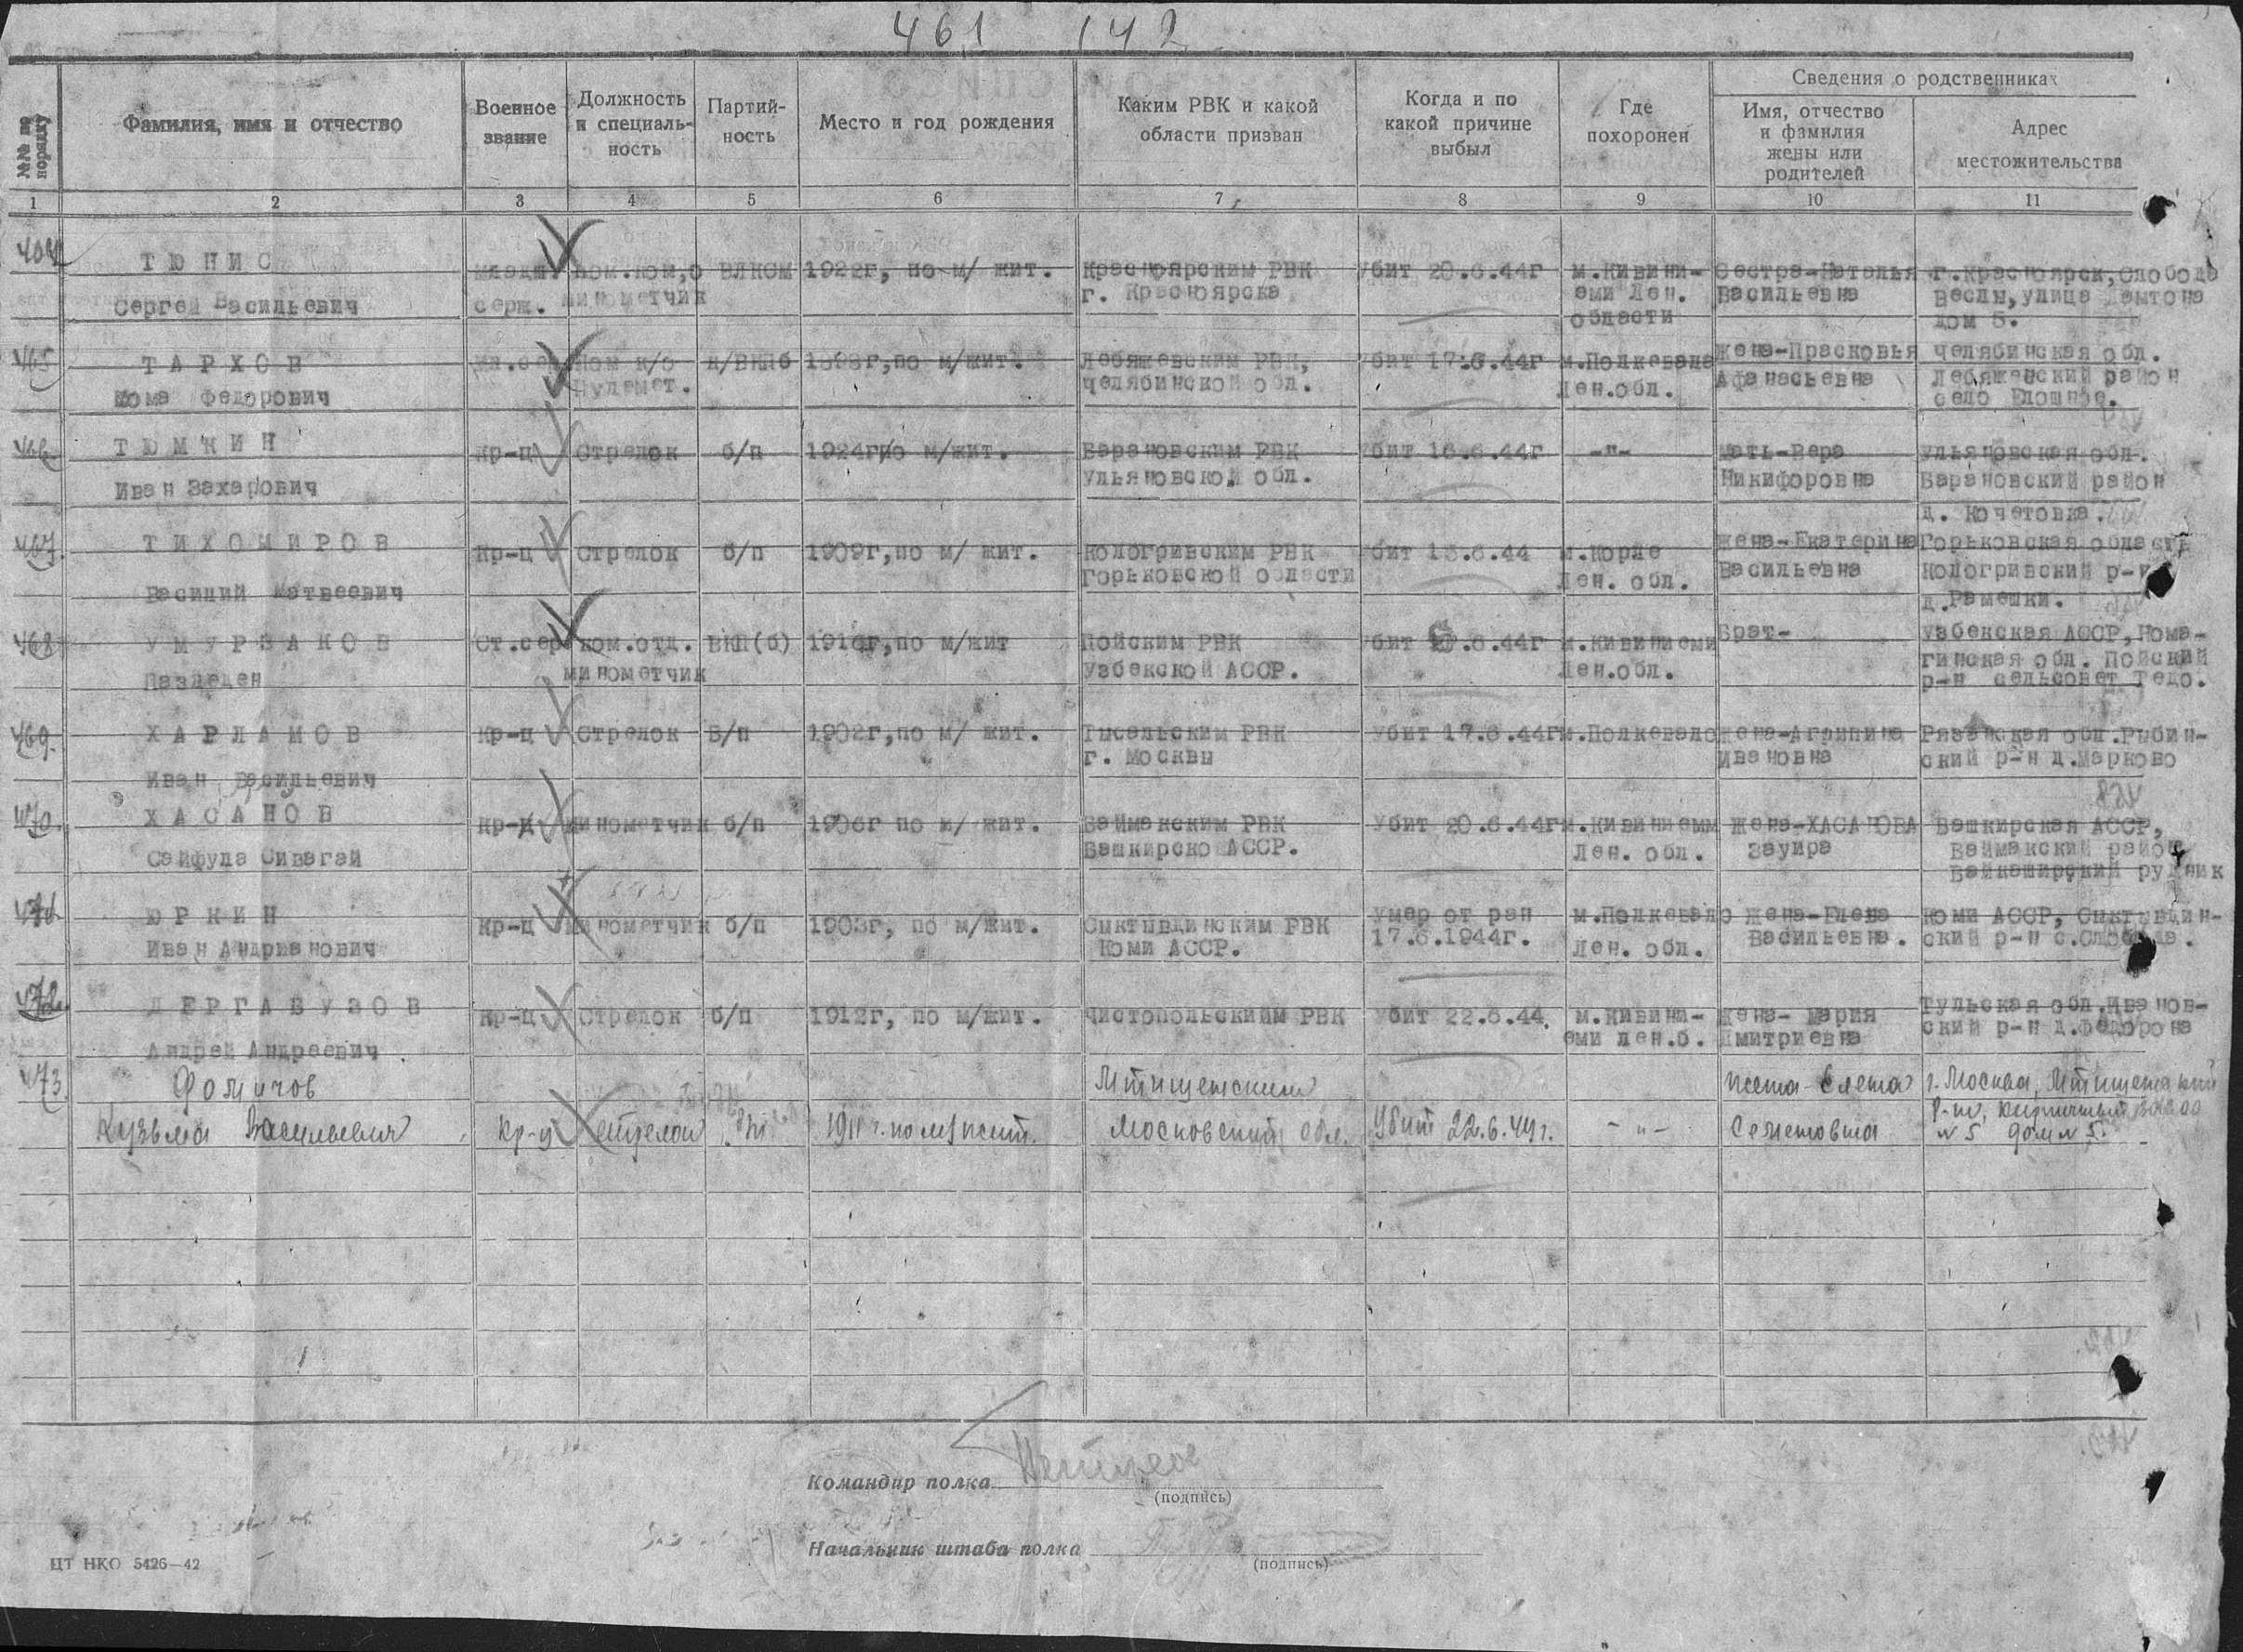 461 142
№№ по порядку
Фамилия, имя и отчество
Военное звание
Должность и специаль-ность
Партий-ность
Место и год рождения
Каким РВК и какой области призван
Когда и по какой причине выбыл
Где похоронен
Сведения о родственниках
Имя, отчество и фамилия жены или родителей
Адрес местожительства
1 2 3 4 5 6 7 8 9 10 11
ТЮНИС ВЛКСМ 1922г, по м/ жит. Красноярским РВК Убит 20.6.44г м.Кивини- Сестра-Наталья г.Красноярск,Слобода
Сергей Васильевич серж. минометчик г. Красноярска еми Лен. Васильевна Весны,улица
области дом 5.
465 ТАРХОВ Пом к/о к/ВКПб по м/жит. Лебяжевским РВК, Убит 17.6.44г м.Полкевала Жена-Прасковья Челябинская обл.
Фома Федорович Пулемет. Челябинской обл. Лен.обл. Афанасьевна Лебяжевский район
село Елошное.
466 ТЮМКИН кр-ц Стрелок б/п 1924г по м/жит. Барановским РВК Убит 16.6.44г -"- Мать-Вера Ульяновская обл.
Иван Захарович Ульяновской обл. Никифоровна Барановский район
д. Кочетовка.
467. ТИХОМИРОВ кр-ц Стрелок б/п 1909г,по м/ жит. Кологривским РВК Убит 13.6.44 Жена-Екатерина Горьковская область
Василий Матвеевич Горьковской области Лен. обл. Васильевна Кологривский р-н
д.Рамешки.
468 УМУРЗАКОВ Ст.сер ком.отд. ВКП(б) по м/жит Пойским РВК Убит м.Кивиниеми Брат- Узбекская АССР, Нама-
минометчик Узбекской АССР. Лен.обл. гинская обл. Пойский
р-н сельсовет Гедо.
469. ХАРЛАМОВ кр-ц Стрелок Б/п 1902г,по м/ жит. РВК Убит 17.6.44г м.Полкевало Жена-Агрипина Рязанская обл.Рыбин-
Иван Васильевич г. Москвы Ивановна ский р-н д.Марково
470. ХАСАНОВ кр-ц минометчик б/п 1906г по м/ жит. Баймакским РВК Убит 20.6.44г м.Кивиниеми Жена-ХАСАНОВА Башкирская АССР,
Сайфула Сивагай Башкирско АССР. Лен. обл. Зауира Баймакский район
рудник
471 ЮРКИН кр-ц минометчик б/п 1903г, по м/жит. Сыктывдинским РВК Умер от ран м.Полкевало Жена-Елена Коми АССР, Сыктывдин-
Иван Андрианович Коми АССР. 17.6.1944г. Лен. обл. Васильевна. ский р-н с.Слобода.
472 ДЕРГАБУЗОВ кр-ц Стрелок б/п 1912г, по м/жит. Чистопольскиим РВК Убит 22.6.44. м.Кивини- Жена- Мария Тульская обл.Иванов-
Андрей Андреевич еми лен.б. Дмитриевна ский р-н
473. Фомичов Мтищенским жена-Елена г. Москва, Мтищенский
Кузьма Васильевич кр-ц стрелок б/п 1911 г. по м/жит. Московской обл. Убит 22.6.44г. -"- Семеновна р-н, кирпичный завод
№ 5 дом № 5.
Командир полка
(подпись)
Начальник штаба полка
(подпись)
ЦТ НКО 5426—42